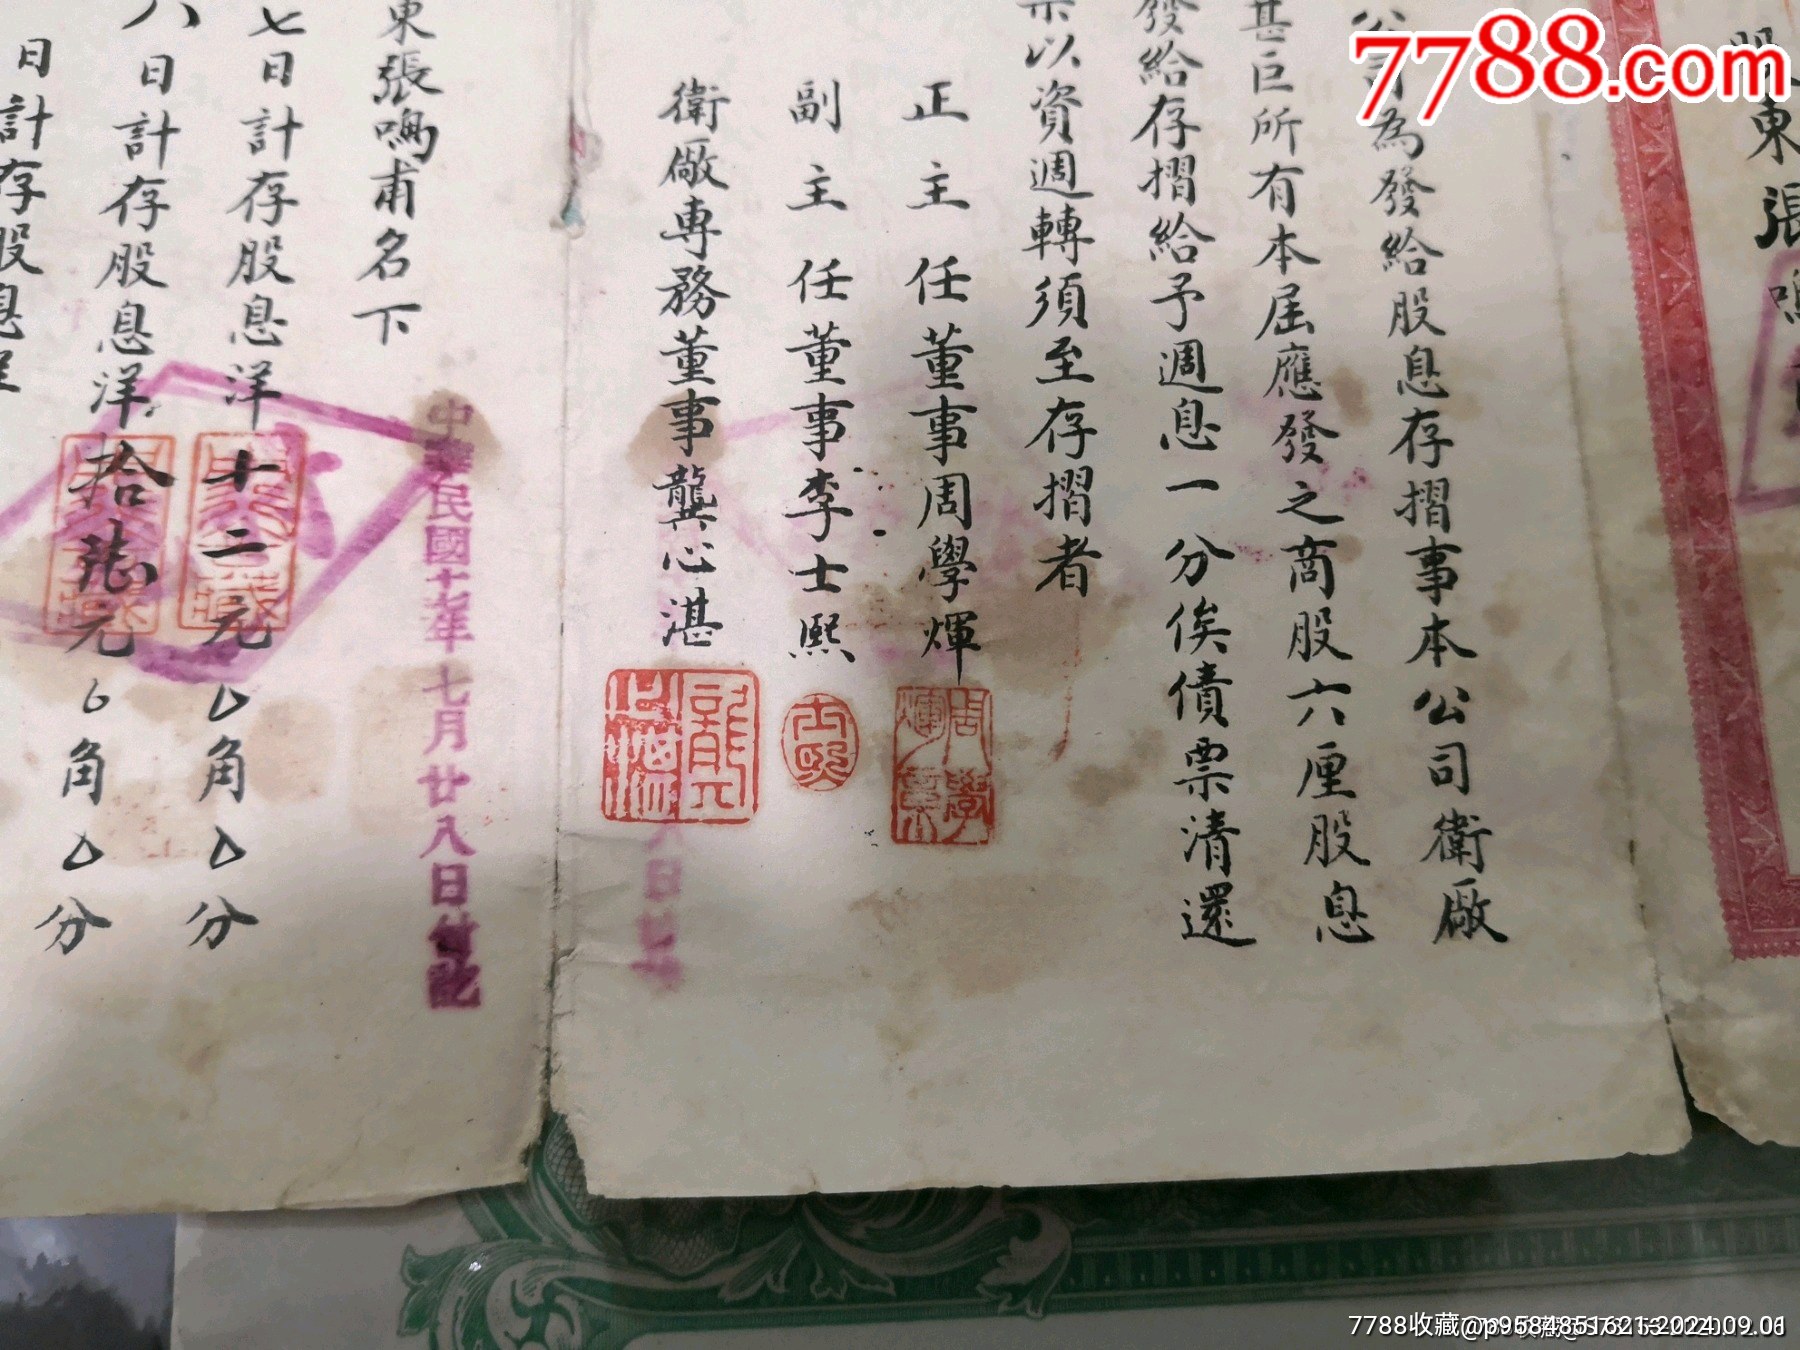 7788.com
股東張鳴
公司為發給股息存摺事本公司衛廠
甚巨所有本屆應發之商股六厘股息
發給存摺給予週息一分俟債票清還
票以資週轉須至存摺者
正主任董事周學煇
副主任董事李士熙
衛廠專務董事龔心湛
周學煇章
士熙
龔心湛
東張鳴甫名下
中華民國十七年七月廿八日付訖
七日計存股息洋十二元△角△分
八日計存股息洋拾陸元6角△分
日計存股息洋
7788收藏@p95848516215-2024.09.01